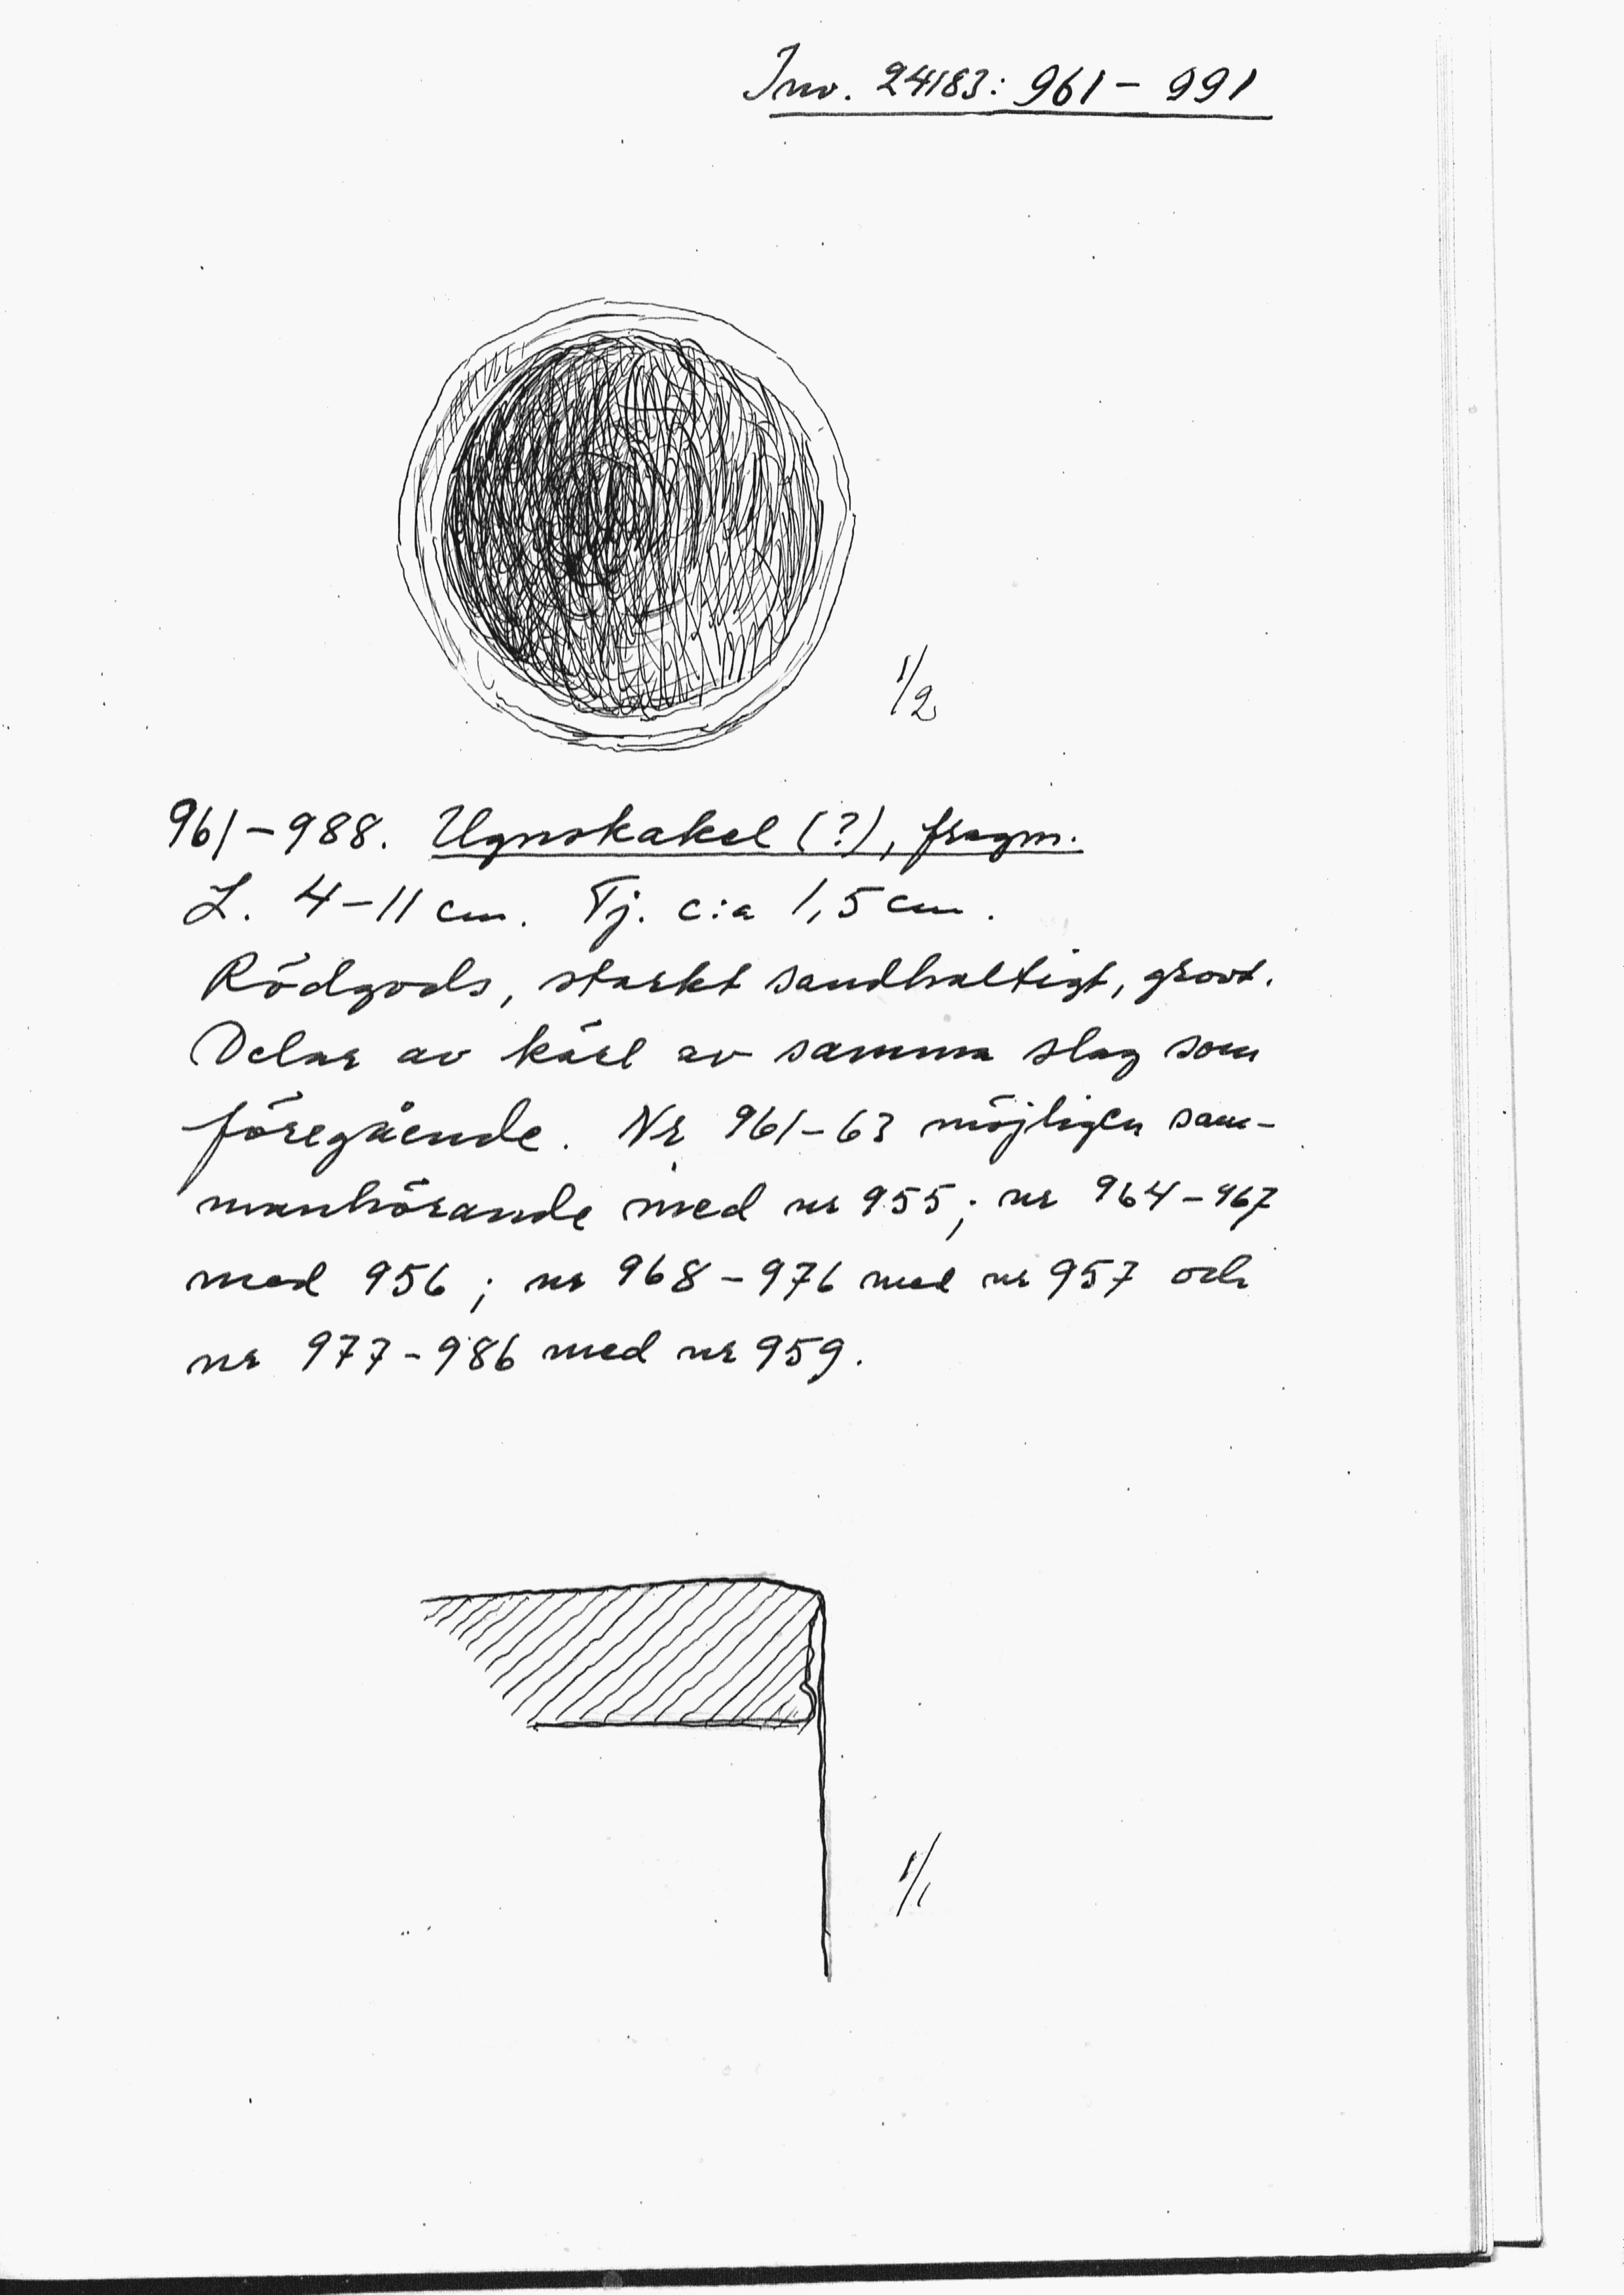 Inv. 24183: 961 – 991
1/2
961–988. Ugnskakel (?), fragm.
L. 4–11 cm. Tj. c:a 1,5 cm.
Rödgods, starkt sandhaltigt, grovt.
Delar av kärl av samma slag som
föregående. Nr 961–63 möjligen sam-
manhörande med nr 955; nr 964–967
med 956; nr 968–976 med nr 957 och
nr 977–986 med nr 959.
1/1